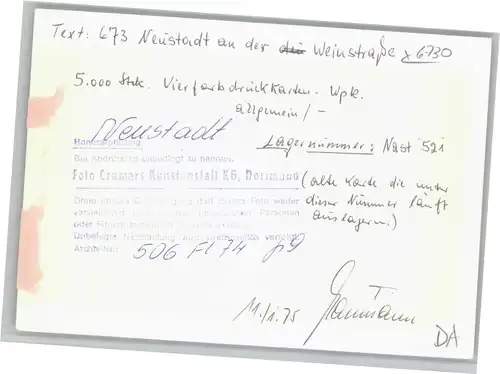 Text: 673 Neustadt an der Weinstraße 6730
5.000 Stck. Vierfarbdruckkarten. Wpk.
allgemein/-
Neustadt
Lagernummer: Nast 521
Bei Nachdruck unbedingt zu nennen:
Foto Cramers Kunstanstalt KG, Dortmund
(alte Karte die unter
dieser Nummer läuft
auslagern.)
Ohne unsere darf dieses Foto weder
Personen
oder Firmen
Unbefugte
Archiv-Nr.: 506 Fl 74 p9
11./1.75
DA